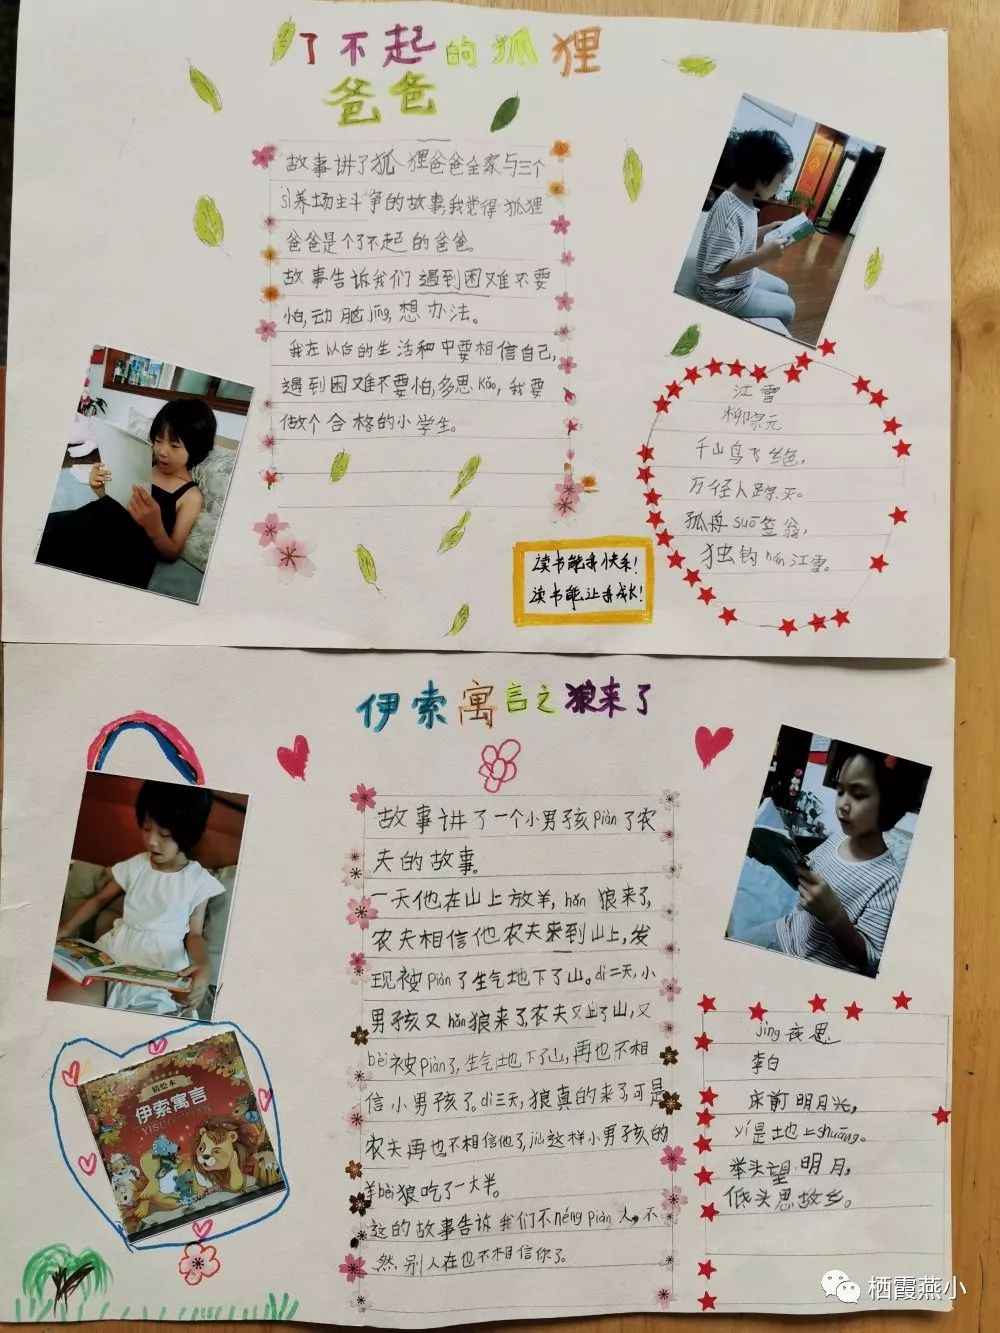 了不起的狐狸
爸爸
故事讲了狐狸爸爸全家与三个
sì养场主斗争的故事,我觉得狐狸
爸爸是个了不起的爸爸。
故事告诉我们遇到困难不要
怕,动脑jīng,想办法。
我在以后的生活和中要相信自己,
遇到困难不要怕,多思kǎo,我要
做个合格的小学生。
江雪
柳宗元
千山鸟飞绝,
万径人踪灭。
孤舟suō笠翁,
独钓hán江雪。
读书能手快乐!
读书能让我成长!
伊索寓言之狼来了
故事讲了一个小男孩piàn了农
夫的故事。
一天他在山上放羊,hǎn狼来了,
农夫相信他农夫来到山上,发
现被piàn了生气地下了山。dì二天,小
男孩又hǎn狼来了,农夫又上了山,又
bèi被piàn了,生气地下了山,再也不相
信小男孩了。dì三天,狼真的来了可是
农夫再也不相信他了,jiù这样小男孩的
羊bèi狼吃了一大半。
这的故事告诉我们不néng piàn人,不
然别人在也不相信你了。
精绘本
伊索寓言
YISUOYUYAN
jìng夜思
李白
床前明月光,
yí是地上shuāng。
举头望明月,
低头思故乡。
栖霞燕小